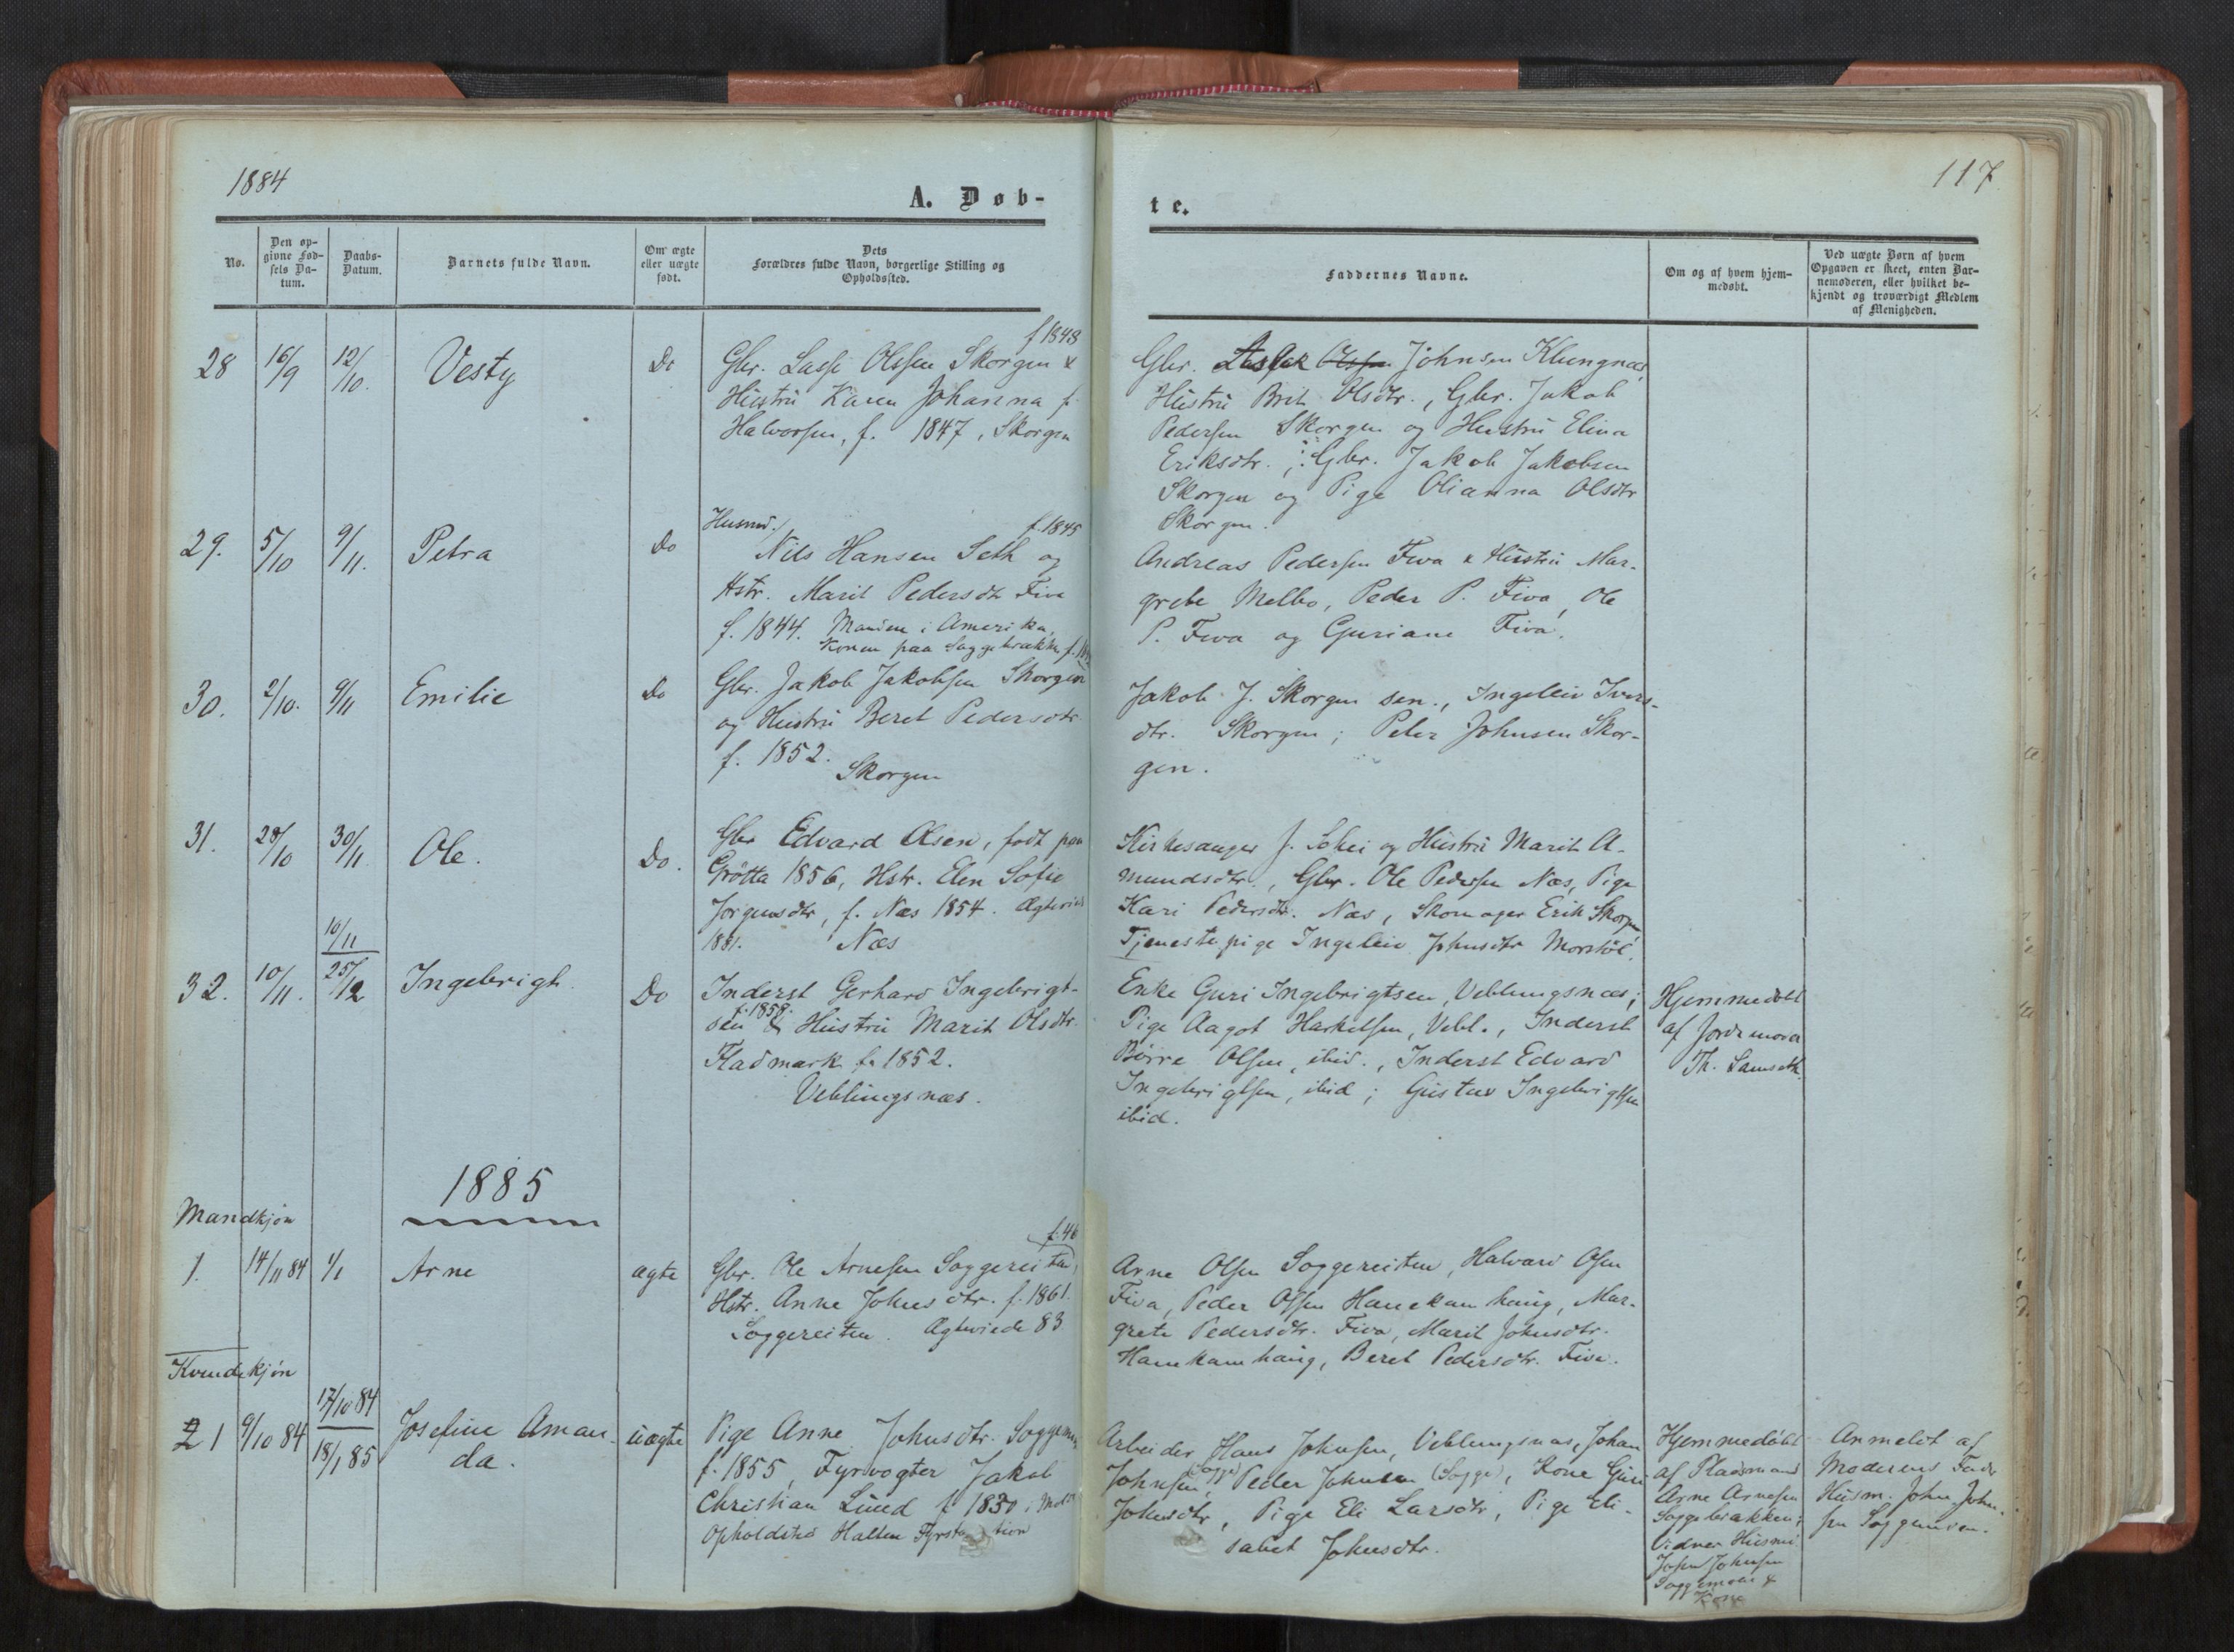 1884
117
A. Døb-
te.
No.
Den op-
givne Fød-
sels Da-
tum.
Daabs-
Datum.
Barnets fulde Navn.
Om ægte
eller uægte
født.
Dets
Forældres fulde Navn, borgerlige Stilling og
Opholdssted.
Faddernes Navne.
Om og af hvem hjem-
medøbt.
Ved uægte Børn af hvem
Opgaven er skeet, enten Bar-
nemoderen, eller hvilket be-
kjendt og troværdigt Medlem
af Menigheden.
28
16/9
12/10.
Vesty
Do
f 1848
Gbr. Lasse Olssen Skorgen &
Hustru Karen Johanna f.
Halvorsen, f. 1847, Skorgen
Gbr. Olssen Johnsen Klungnæs
Hustru Brit Olsdtr., Gbr. Jakob
Pedersen Skorgen og Hustru Elina
Eriksdtr.; Gbr. Jakob Jakobsen
Skorgen og Pige Olianna Olsdtr
Skorgen.
29.
5/10
9/11.
Petra
Do
Husmd. f. 1845
Nils Hansen Seth og
Hstr. Marit Pedersdtr Fiva
f. 1844. Manden i Amerika,
Konen paa Soggebrakken
Andreas Pedersen Fiva & Hustru Mar-
grete Melbo, Peder P. Fiva, Ole
P. Fiva og Guriane Fiva.
30.
2/10.
9/11
Emilie
Do
Gbr. Jakob Jakobsen Skorgen
og Hustru Beret Pedersdtr
f. 1852.
Skorgen
Jakob J. Skorgen sen., Ingeleiv Ivers-
dtr. Skorgen; Peter Johnsen Skor-
gen.
31.
28/10
30/11
Ole.
Do.
Gbr Edvard Olsen, født paa
Grøtta 1856, Hstr. Elen Sofie
Jørgensdtr, f. Næs 1854. Ægteviede
1881. Næs
Kirkesanger J. Sohei og Hustru Marit A-
mundsdtr., Gbr. Ole Pedersen Næs, Pige
Kari Pedersdtr. Næs, Skomager Erik Skorgen,
Tjenestepige Ingeleiv Johnsdtr Morstøl.
32.
10/11.
10/11
25/12
Ingebrigt.
Do
Inderst Gerhard Ingebrigt-
sen f. 1858. & Hustru Marit Olsdtr.
Fladmark f. 1852.
Veblungsnæs.
Enke Guri Ingebrigtsen, Veblungsnæs;
Pige Aagot Harkelsen, Vebl., Inderst
Børre Olsen, ibid., Inderst Edvard
Ingebrigtsen, ibid; Gustav Ingebrigtsen
ibid.
Hjemmedøbt
af Jordemoder
Th. Samseth.
1885
Mandkjøn
1.
14/11 84
1/1
Arne
ægte
f. 46
Gbr. Ole Arnesen Soggereiten,
Hstr. Anne Johnsdtr. f. 1861.
Soggereiten. Ægteviede 83
Arne Olsen Soggereiten, Halvard Olsen
Fiva, Peder Olsen Hanekamhaug, Mar-
grete Pedersdtr. Fiva, Marit Johnsdtr.
Hanekamhaug, Beret Pedersdtr. Fiva.
Kvindekjøn
1
9/10 84
17/10 84
18/1 85
Josefine Aman-
da.
uægte
Pige Anne Johnsdtr. Soggemoen
f. 1855, Fyrvogter Jakob
Christian Lund f 1830 i Molde
Opholdsted Halten Fyrstation
Arbeider Hans Johnsen, Veblungsnæs, Johan
Johnsen (Sogge), Peder Johnsen (Sogge), Kone Guri
Johnsdtr, Pige Eli Larsdtr, Pige Eli-
sabet Johnsdtr.
Hjemmedøbt
af Pladsmand
Arne Arnesen
Soggebrakken;
Vidner Husmd
John Johnsen
Soggemoen &
Kone
Anmeldt af
Moderens Fader
Husm. John John-
sen Soggemoen.